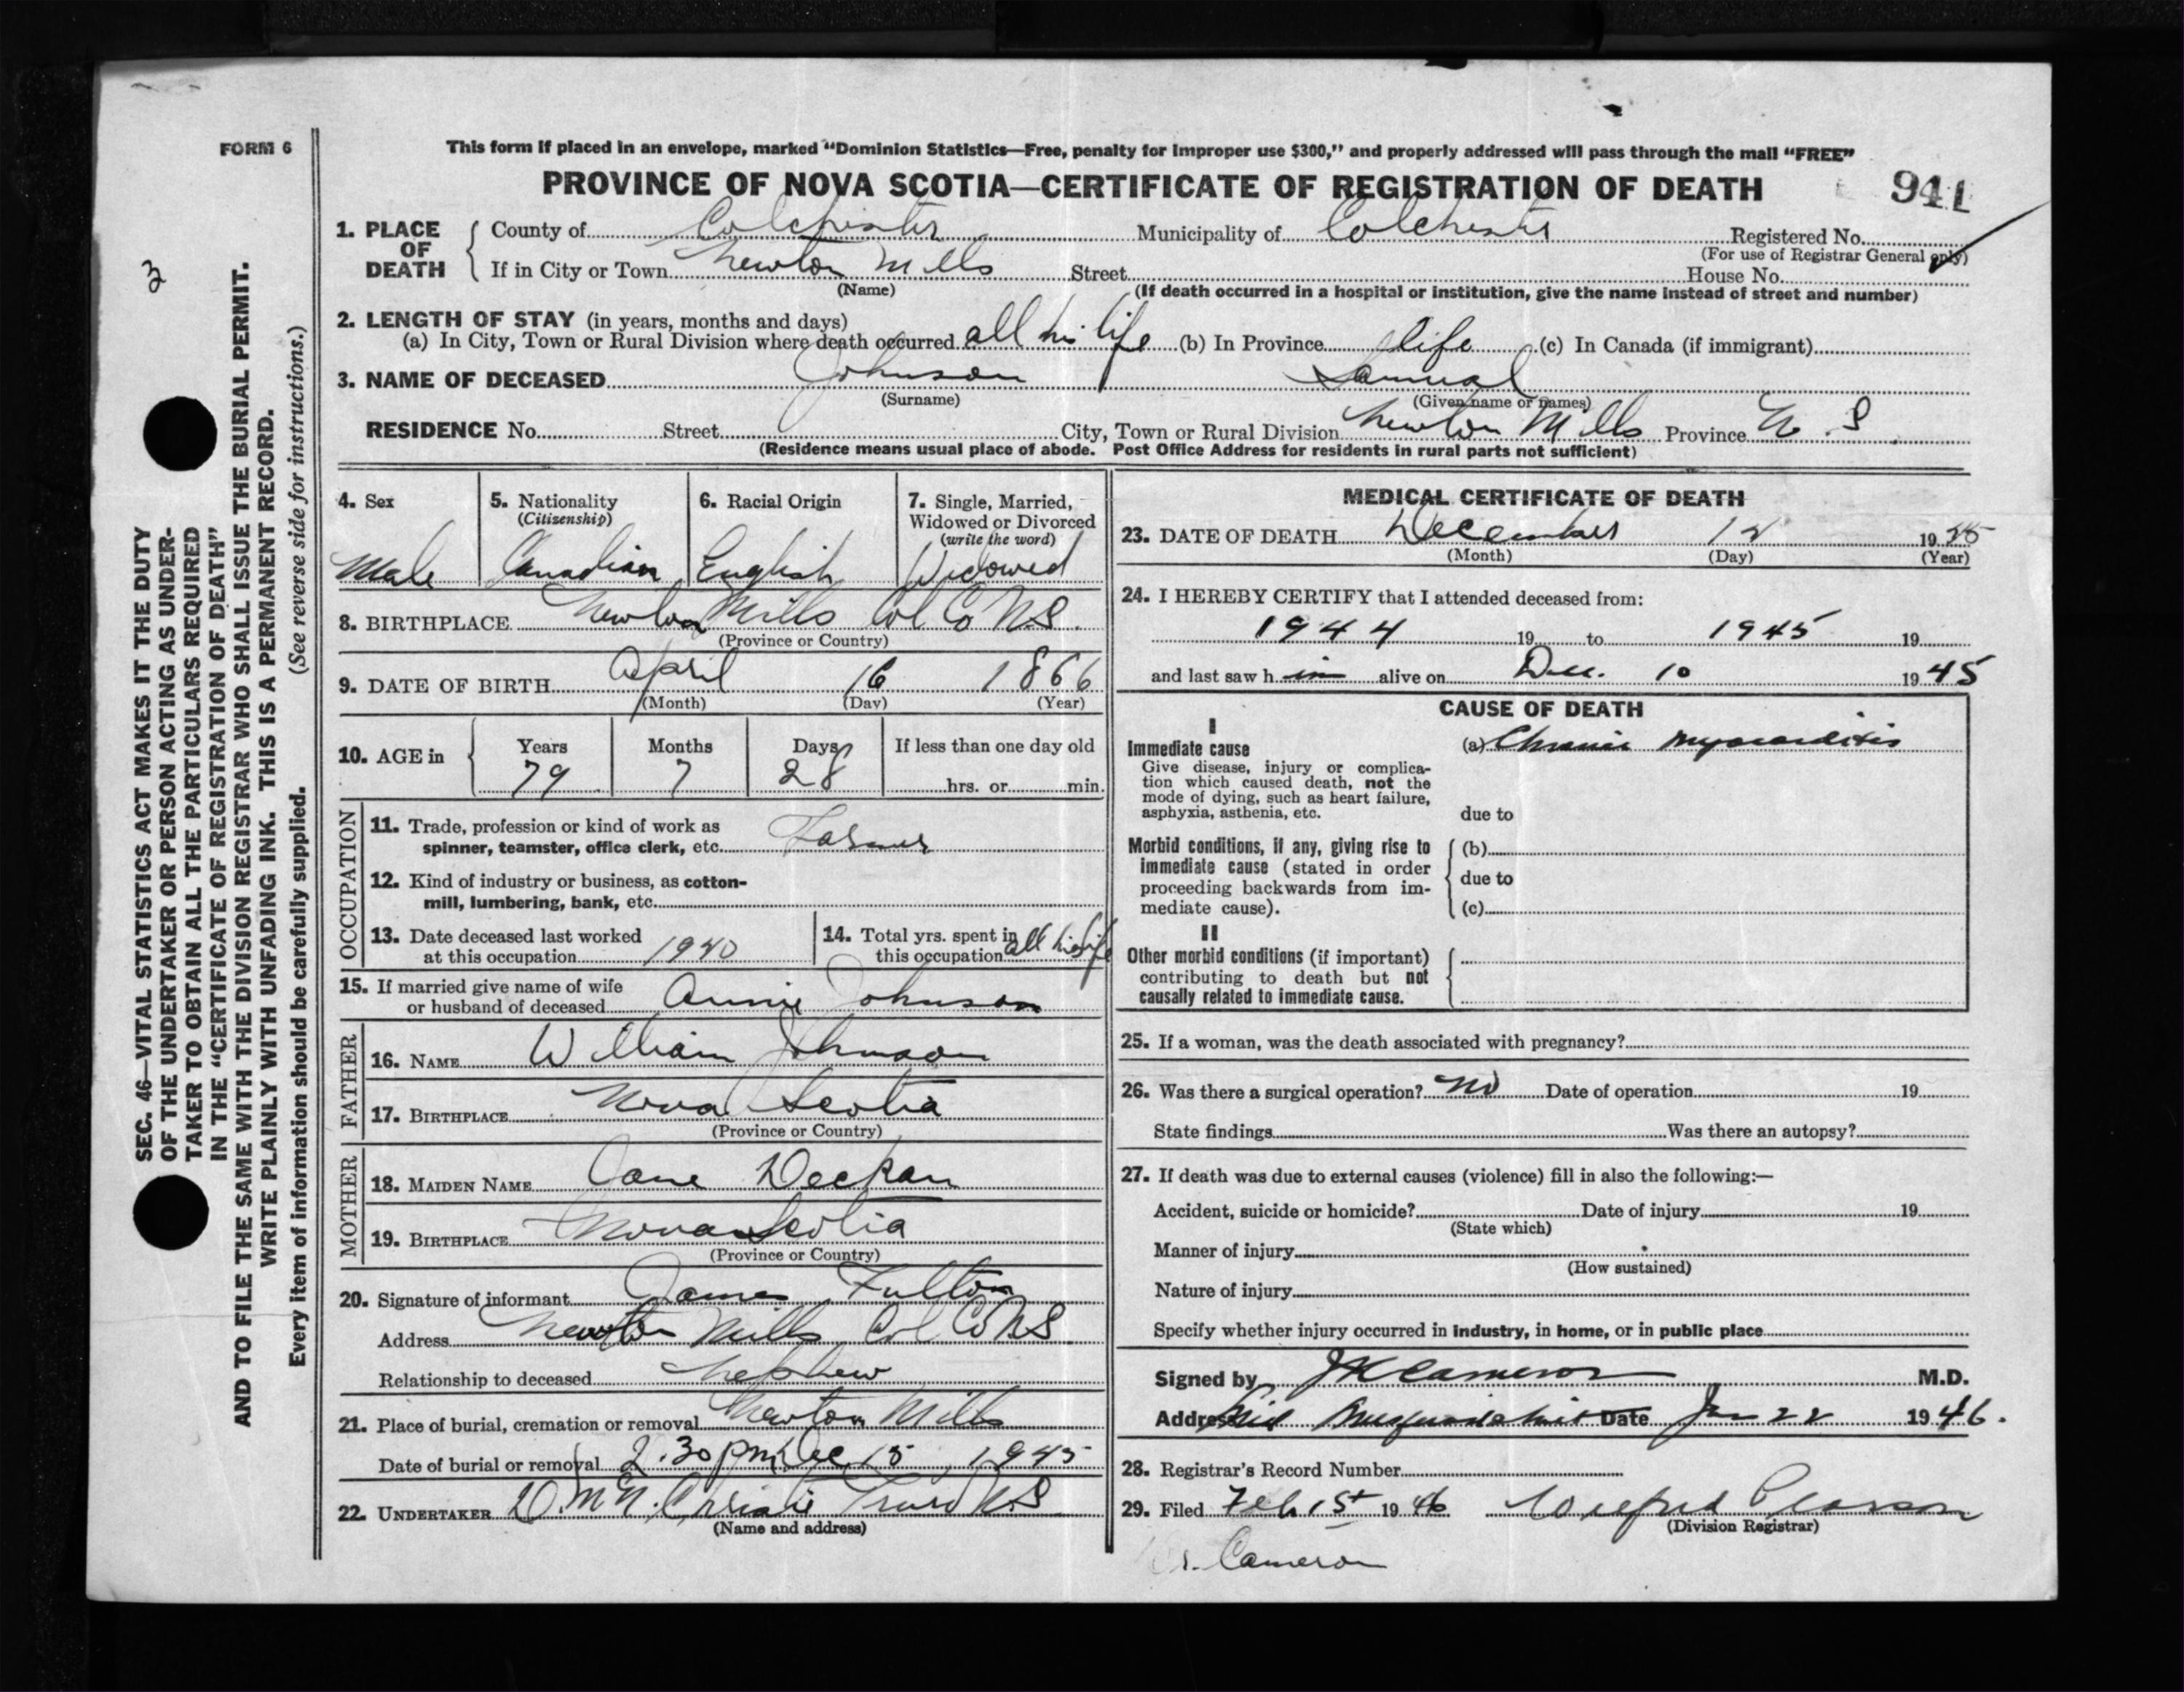 FORM 6
This form if placed in an envelope, marked "Dominion Statistics—Free, penalty for improper use $300," and properly addressed will pass through the mail "FREE"
PROVINCE OF NOVA SCOTIA—CERTIFICATE OF REGISTRATION OF DEATH
941
1. PLACE OF DEATH
County of Colchester Municipality of Colchester Registered No.
(For use of Registrar General only)
If in City or Town Newton Mills Street House No.
(Name) (If death occurred in a hospital or institution, give the name instead of street and number)
2. LENGTH OF STAY (in years, months and days)
(a) In City, Town or Rural Division where death occurred all his life (b) In Province life (c) In Canada (if immigrant)
3. NAME OF DECEASED Johnson Samual
(Surname) (Given name or names)
RESIDENCE No. Street City, Town or Rural Division Newton Mills Province N. S.
(Residence means usual place of abode. Post Office Address for residents in rural parts not sufficient)
4. Sex Male
5. Nationality (Citizenship) Canadian
6. Racial Origin English
7. Single, Married, Widowed or Divorced (write the word) Widowed
8. BIRTHPLACE Newton Mills Col Co N.S.
(Province or Country)
9. DATE OF BIRTH April 16 1866
(Month) (Day) (Year)
10. AGE in Years 79 Months 7 Days 28 If less than one day old
hrs. or min.
OCCUPATION
11. Trade, profession or kind of work as
spinner, teamster, office clerk, etc. Farmer
12. Kind of industry or business, as cotton-
mill, lumbering, bank, etc.
13. Date deceased last worked
at this occupation 1940
14. Total yrs. spent in
this occupation all his life
15. If married give name of wife
or husband of deceased Annie Johnson
FATHER
16. NAME William Johnson
17. BIRTHPLACE Nova Scotia
(Province or Country)
MOTHER
18. MAIDEN NAME Jane
19. BIRTHPLACE Nova Scotia
(Province or Country)
20. Signature of informant James Fulton
Address Newton Mills Col Co NS
Relationship to deceased Nephew
21. Place of burial, cremation or removal Newton Mills
Date of burial or removal 2.30 pm Dec 15, 1945
22. UNDERTAKER Christie Truro N.S
(Name and address)
MEDICAL CERTIFICATE OF DEATH
23. DATE OF DEATH December 12 1945
(Month) (Day) (Year)
24. I HEREBY CERTIFY that I attended deceased from:
1944 19 to 1945 19
and last saw h im alive on Dec. 10 1945
CAUSE OF DEATH
I
Immediate cause (a) Chronic Myocarditis
Give disease, injury or complica-
tion which caused death, not the
mode of dying, such as heart failure,
asphyxia, asthenia, etc. due to
Morbid conditions, if any, giving rise to (b)
immediate cause (stated in order
proceeding backwards from im- due to
mediate cause). (c)
II
Other morbid conditions (if important)
contributing to death but not
causally related to immediate cause.
25. If a woman, was the death associated with pregnancy?
26. Was there a surgical operation? No Date of operation 19
State findings Was there an autopsy?
27. If death was due to external causes (violence) fill in also the following:—
Accident, suicide or homicide? Date of injury 19
(State which)
Manner of injury
(How sustained)
Nature of injury
Specify whether injury occurred in industry, in home, or in public place
Signed by Cameron M.D.
Address Mid Musquodoboit Date Jan 22 1946.
28. Registrar's Record Number
29. Filed Feb 1st 1946 Wilfred Pearson
(Division Registrar)
Dr. Cameron
3
SEC. 46—VITAL STATISTICS ACT MAKES IT THE DUTY
OF THE UNDERTAKER OR PERSON ACTING AS UNDER-
TAKER TO OBTAIN ALL THE PARTICULARS REQUIRED
IN THE "CERTIFICATE OF REGISTRATION OF DEATH"
AND TO FILE THE SAME WITH THE DIVISION REGISTRAR WHO SHALL ISSUE THE BURIAL PERMIT.
WRITE PLAINLY WITH UNFADING INK. THIS IS A PERMANENT RECORD.
Every item of information should be carefully supplied. (See reverse side for instructions.)